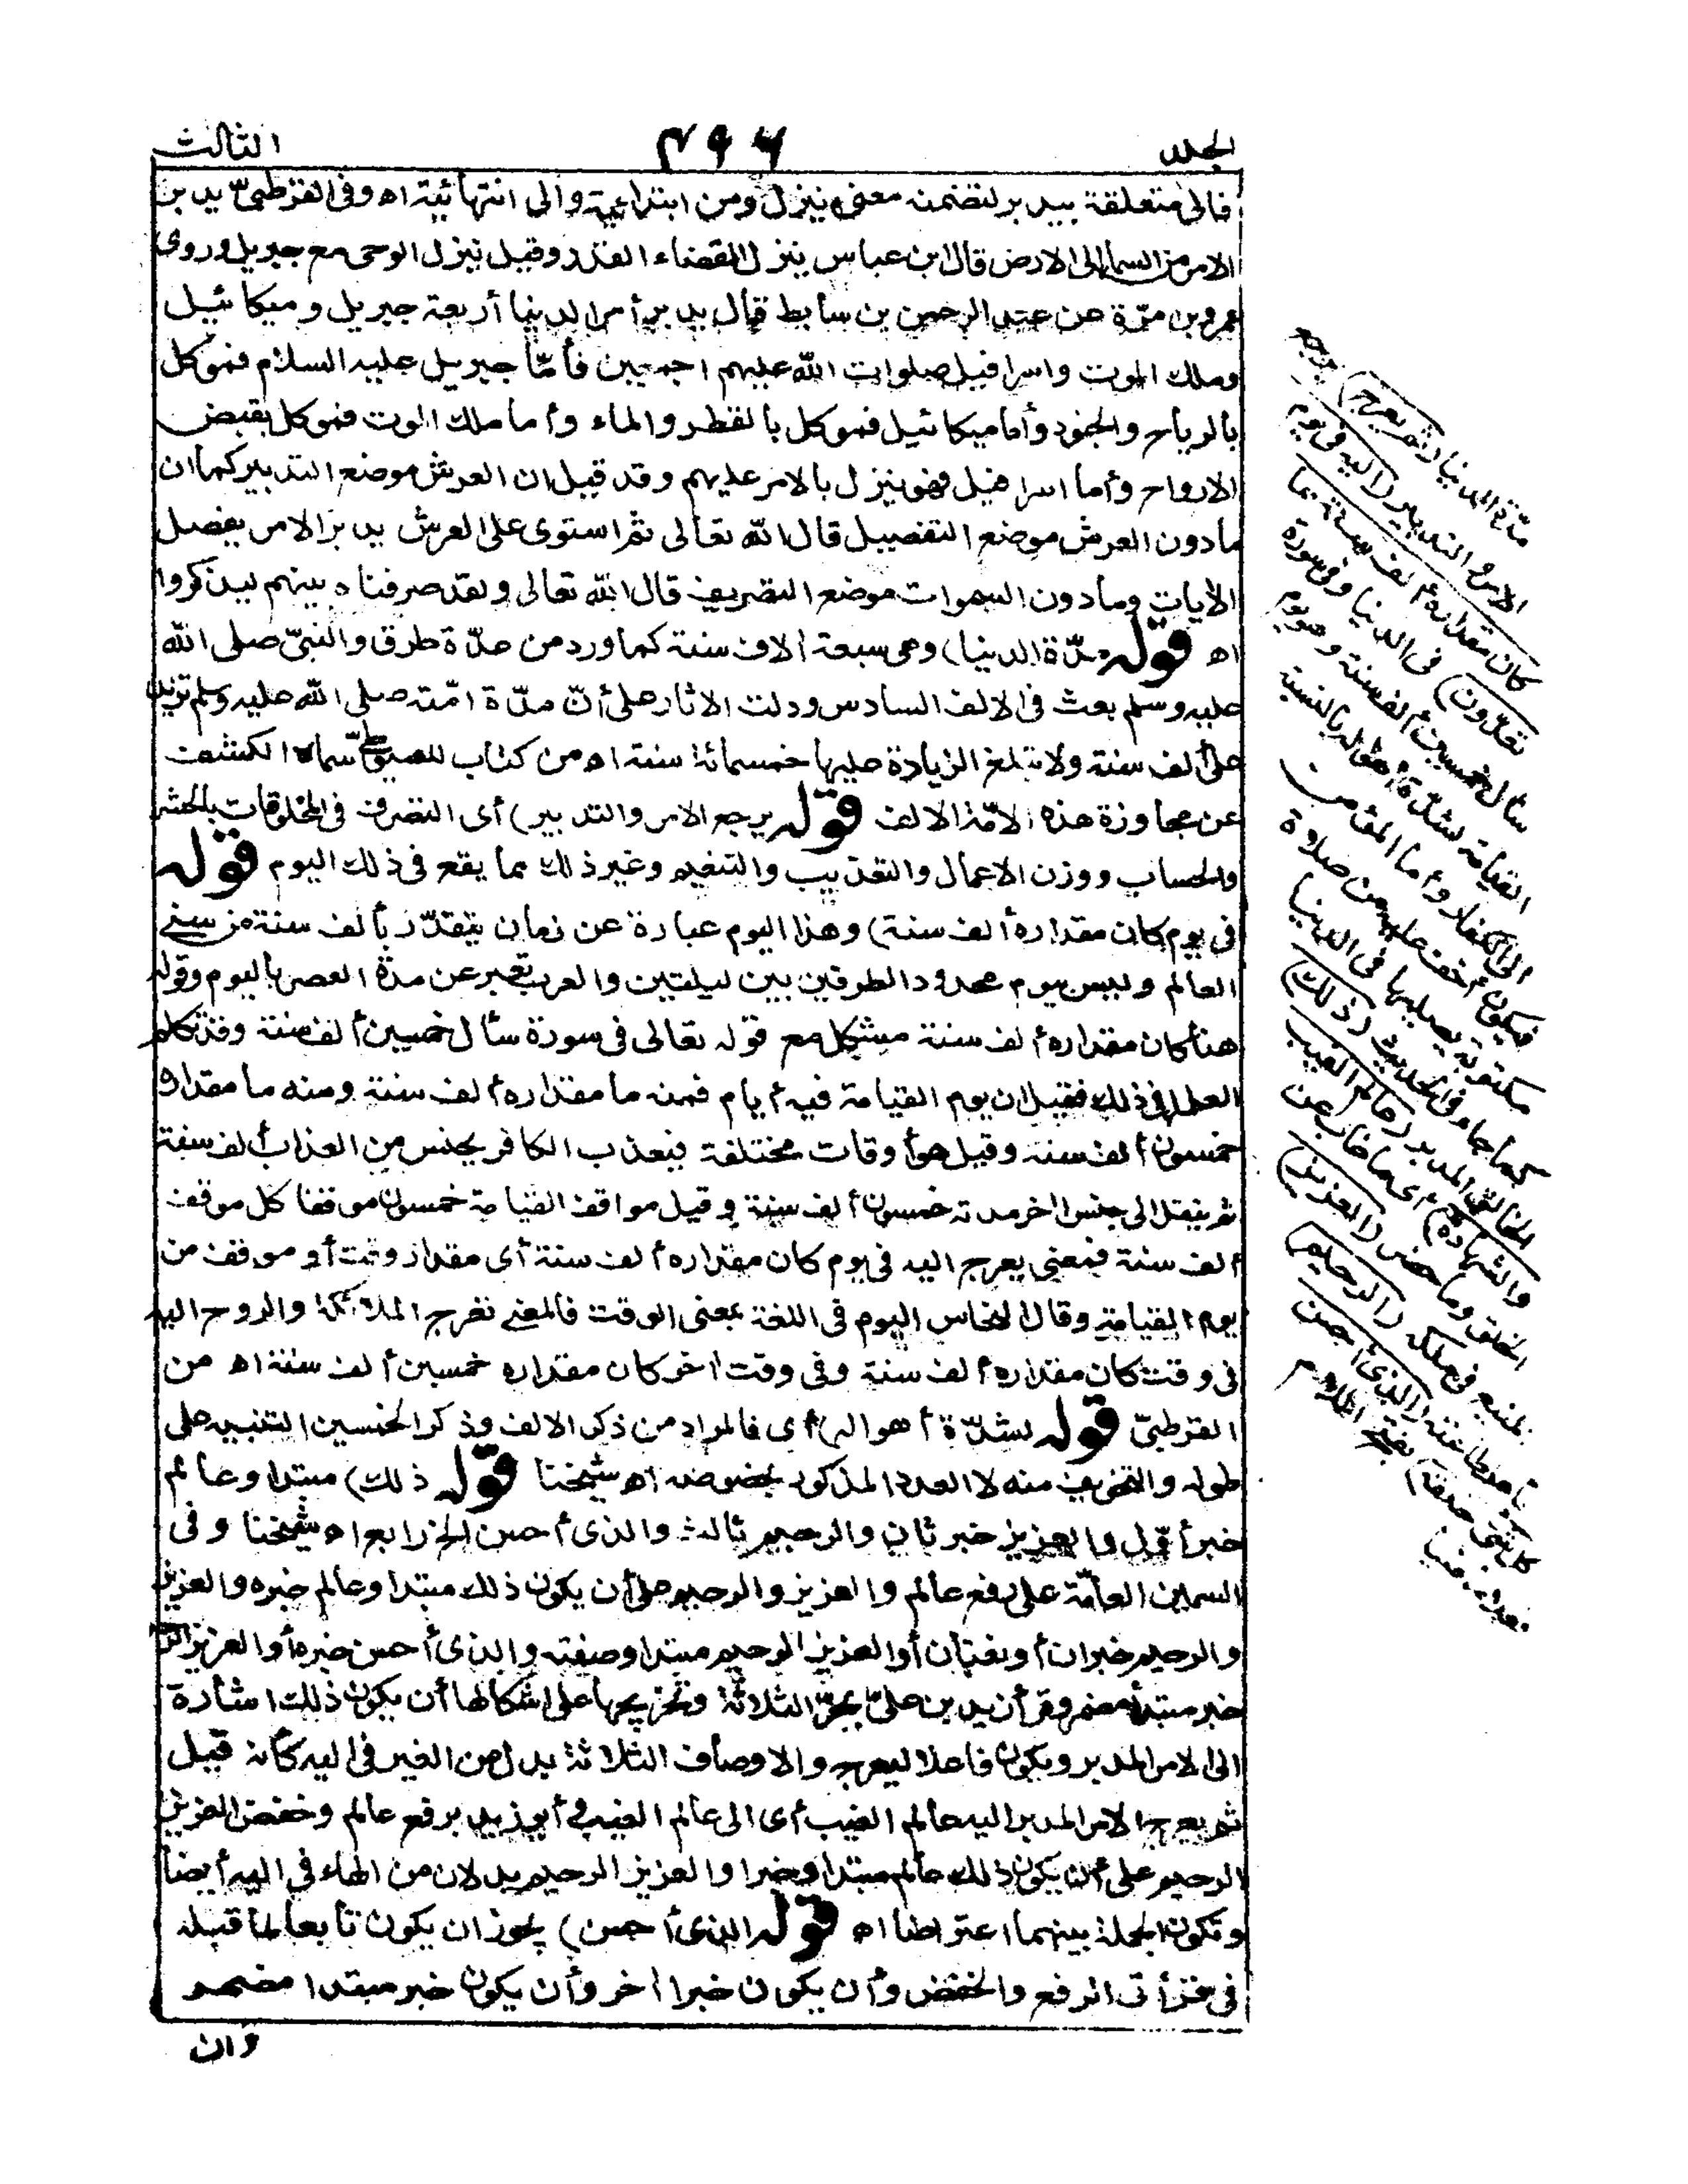 الجلد ٤٩٦ الثالث
فالى متعلقة بيدبر لتضمنه معنى ينزل ومن ابتدائية والى انتهائية اه وفى القرطبىّ يدبر
الامر من السماء الى الارض قال ابن عباس ينزل القضاء والقدر وقيل ينزل الوحى مع جبريل وروى
عمرو بن مرّة عن عبد الرحمن بن سابط قال يدبر أمر الدنيا أربعة جبريل وميكائيل
وملك الموت واسرافيل صلوات الله عليهم اجمعين فأمّا جبريل عليه السلام فموكل
بالرياح والجنود وأما ميكائيل فموكل بالقطر والماء وأما ملك الموت فموكل بقبض
الارواح وأما اسرافيل فهو ينزل بالامر عليهم وقد قيل ان العرش موضع التدبير كما ان
مادون العرش موضع التفصيل قال الله تعالى ثم استوى على العرش يدبر الامر يفصل
الآيات ومادون السموات موضع التصريف قال الله تعالى ولقد صرفناه بينهم ليذكروا
اه قوله مدّة الدنيا) وهى سبعة آلاف سنة كما ورد من عدّة طرق والنبىّ صلى الله
عليه وسلم بعث فى الالف السادس ودلت الآثار على أنّ مدّة امّته صلى الله عليه وسلم تزيد
على ألف سنة ولا تبلغ الزيادة عليها خمسمائة سنة اه من كتاب للسيوطىّ سماه الكشف
عن مجاوزة هذه الامّة الالف قوله يرجع الامر والتدبير) أى التصرف فى المخلوقات بالحشر
والحساب ووزن الاعمال والتعذيب والتنعيم وغير ذلك مما يقع فى ذلك اليوم قوله
فى يوم كان مقداره ألف سنة) وهذا اليوم عبارة عن زمان يتقدّر بألف سنة من سنى
العالم وليس بيوم محدود الطرفين بين ليلتين والعرب تعبر عن مدّة العصر باليوم وقوله
هنا كان مقداره ألف سنة مشكل مع قوله تعالى فى سورة سأل خمسين ألف سنة وقد تكلم
العلماء فى ذلك فقيل ان يوم القيامة فيه أيام فمنه ما مقداره ألف سنة ومنه ما مقداره
خمسون ألف سنة وقيل هو أوقات مختلفة فيعذب الكافر بجنس من العذاب ألف سنة
ثم ينقل الى جنس آخر مدته خمسون ألف سنة وقيل مواقف القيامة خمسون موقفا كل موقف
ألف سنة فمعنى يعرج اليه فى يوم كان مقداره ألف سنة أى مقدار وقت أو موقف من
يوم القيامة وقال النحاس اليوم فى اللغة بمعنى الوقت فالمعنى تعرج الملائكة والروح اليه
فى وقت كان مقداره ألف سنة وفى وقت آخر كان مقداره خمسين ألف سنة اه من
القرطبىّ قوله لشدّة أهواله) أى فالمراد من ذكر الالف وذكر الخمسين التنبيه على
طوله والتخويف منه لا العدد المذكور بخصوصه اه شيخنا قوله ذلك) مبتدا وعالم
خبر أوّل والعزيز خبر ثان والرحيم ثالث والذى أحسن الخ رابع اه شيخنا وفى
السمين العامّة على رفع عالم والعزيز والرحيم على أن يكون ذلك مبتدا وعالم خبره والعزيز
والرحيم خبران أو نعتان أو العزيز الرحيم مبتدا وصفته والذى أحسن خبره أو العزيز الرحيم
خبر مبتدأ مضمر وقرأ زيد بن علىّ بجرّ الثلاثة وتخريجها على اشكالها أن يكون ذلك اشارة
الى الامر المدبر ويكون فاعلا ليعرج والاوصاف الثلاثة بدل من الضمير فى اليه كأنه قيل
ثم يعرج الامر المدبر اليه عالم الغيب أى الى عالم الغيب وأبو زيد برفع عالم وخفض العزيز
الرحيم على أن يكون ذلك عالم مبتدا وخبرا والعزيز الرحيم بدلان من الهاء فى اليه أيضا
وتكون الجملة بينهما اعتراضا اه قوله الذى أحسن) يجوز ان يكون تابعا لما قبله
فى قراءتى الرفع والخفض وأن يكون خبرا آخر وأن يكون خبر مبتدا مضمر
وان
مدّة الدنيا (ثم يعرج) يرجع
الامر والتدبير (اليه فى يوم
كان مقداره ألف سنة مما
تعدّون) فى الدنيا وفى سورة
سأل خمسين ألف سنة وهو يوم
القيامة لشدّة أهواله بالنسبة
الى الكفار وأما المؤمن
فيكون أخف عليه من صلاة
مكتوبة يصليها فى الدنيا
كما جاء فى الحديث (ذلك)
الخالق المدبر (عالم الغيب
والشهادة) أى ما غاب عن
الخلق وما حضر (العزيز)
المنيع فى ملكه (الرحيم)
بأهل طاعته (الذى أحسن
كل شئ خلقه) بفتح اللام
فعلا ماضيا